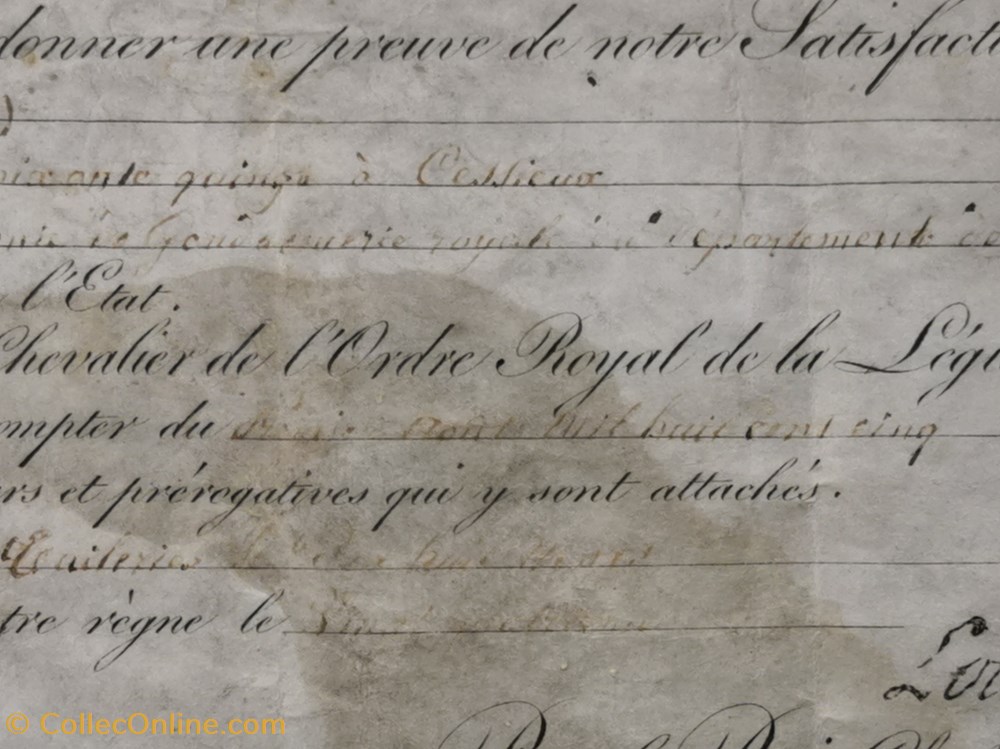 donner une preuve de notre Satisfacti
)
oixante quinze à Cessieux
Gendarmerie royale du département de
l'Etat.
Chevalier de l'Ordre Royal de la Légi
ompter du août mil huit cent cinq
urs et prérogatives qui y sont attachés.
Tuileries le
tre règne le
Lou
© CollecOnline.com